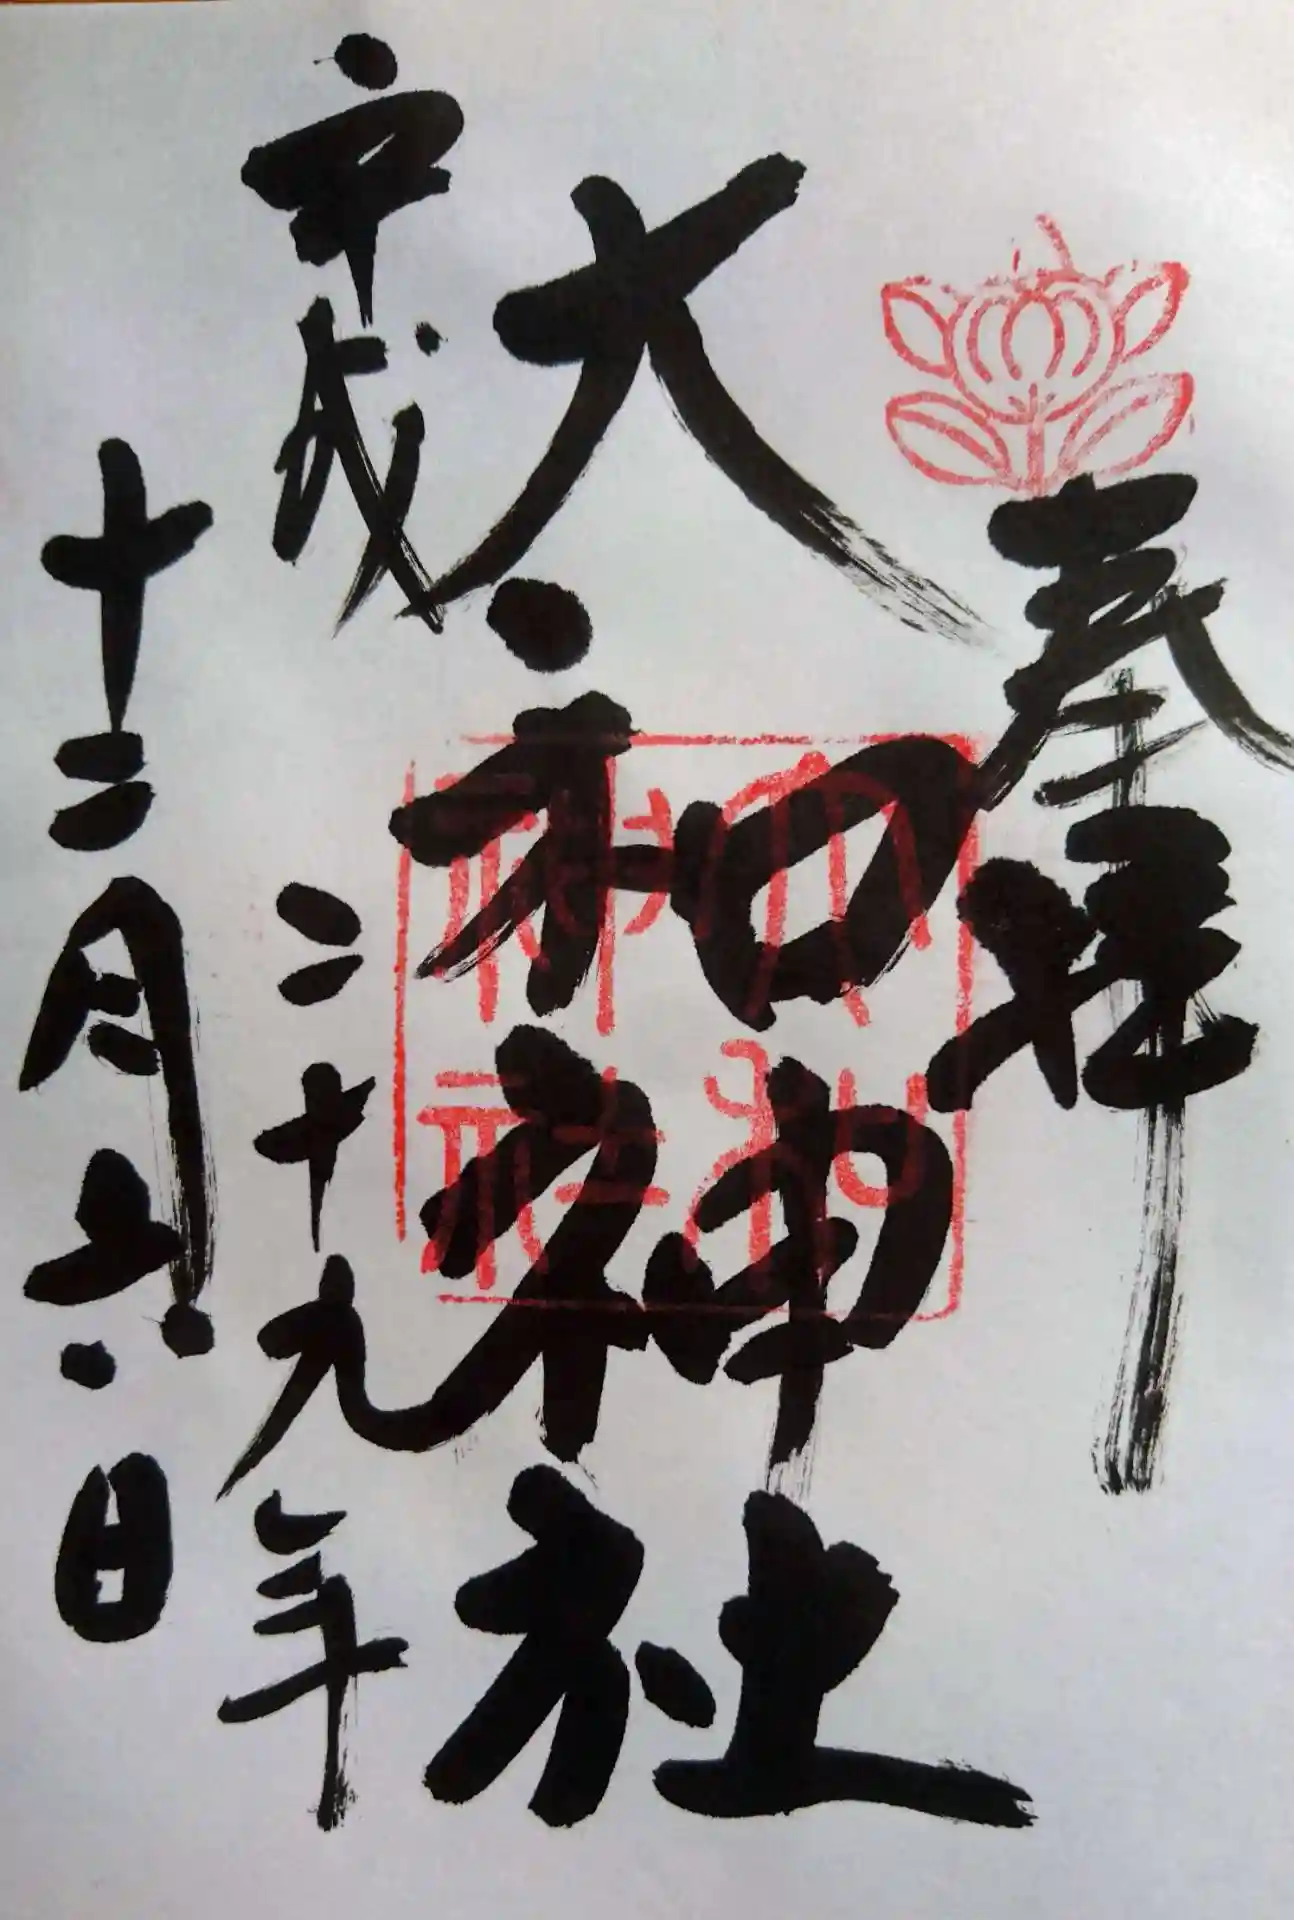 奉拝
大和神社
平成二十九年
十二月六日
大和神社